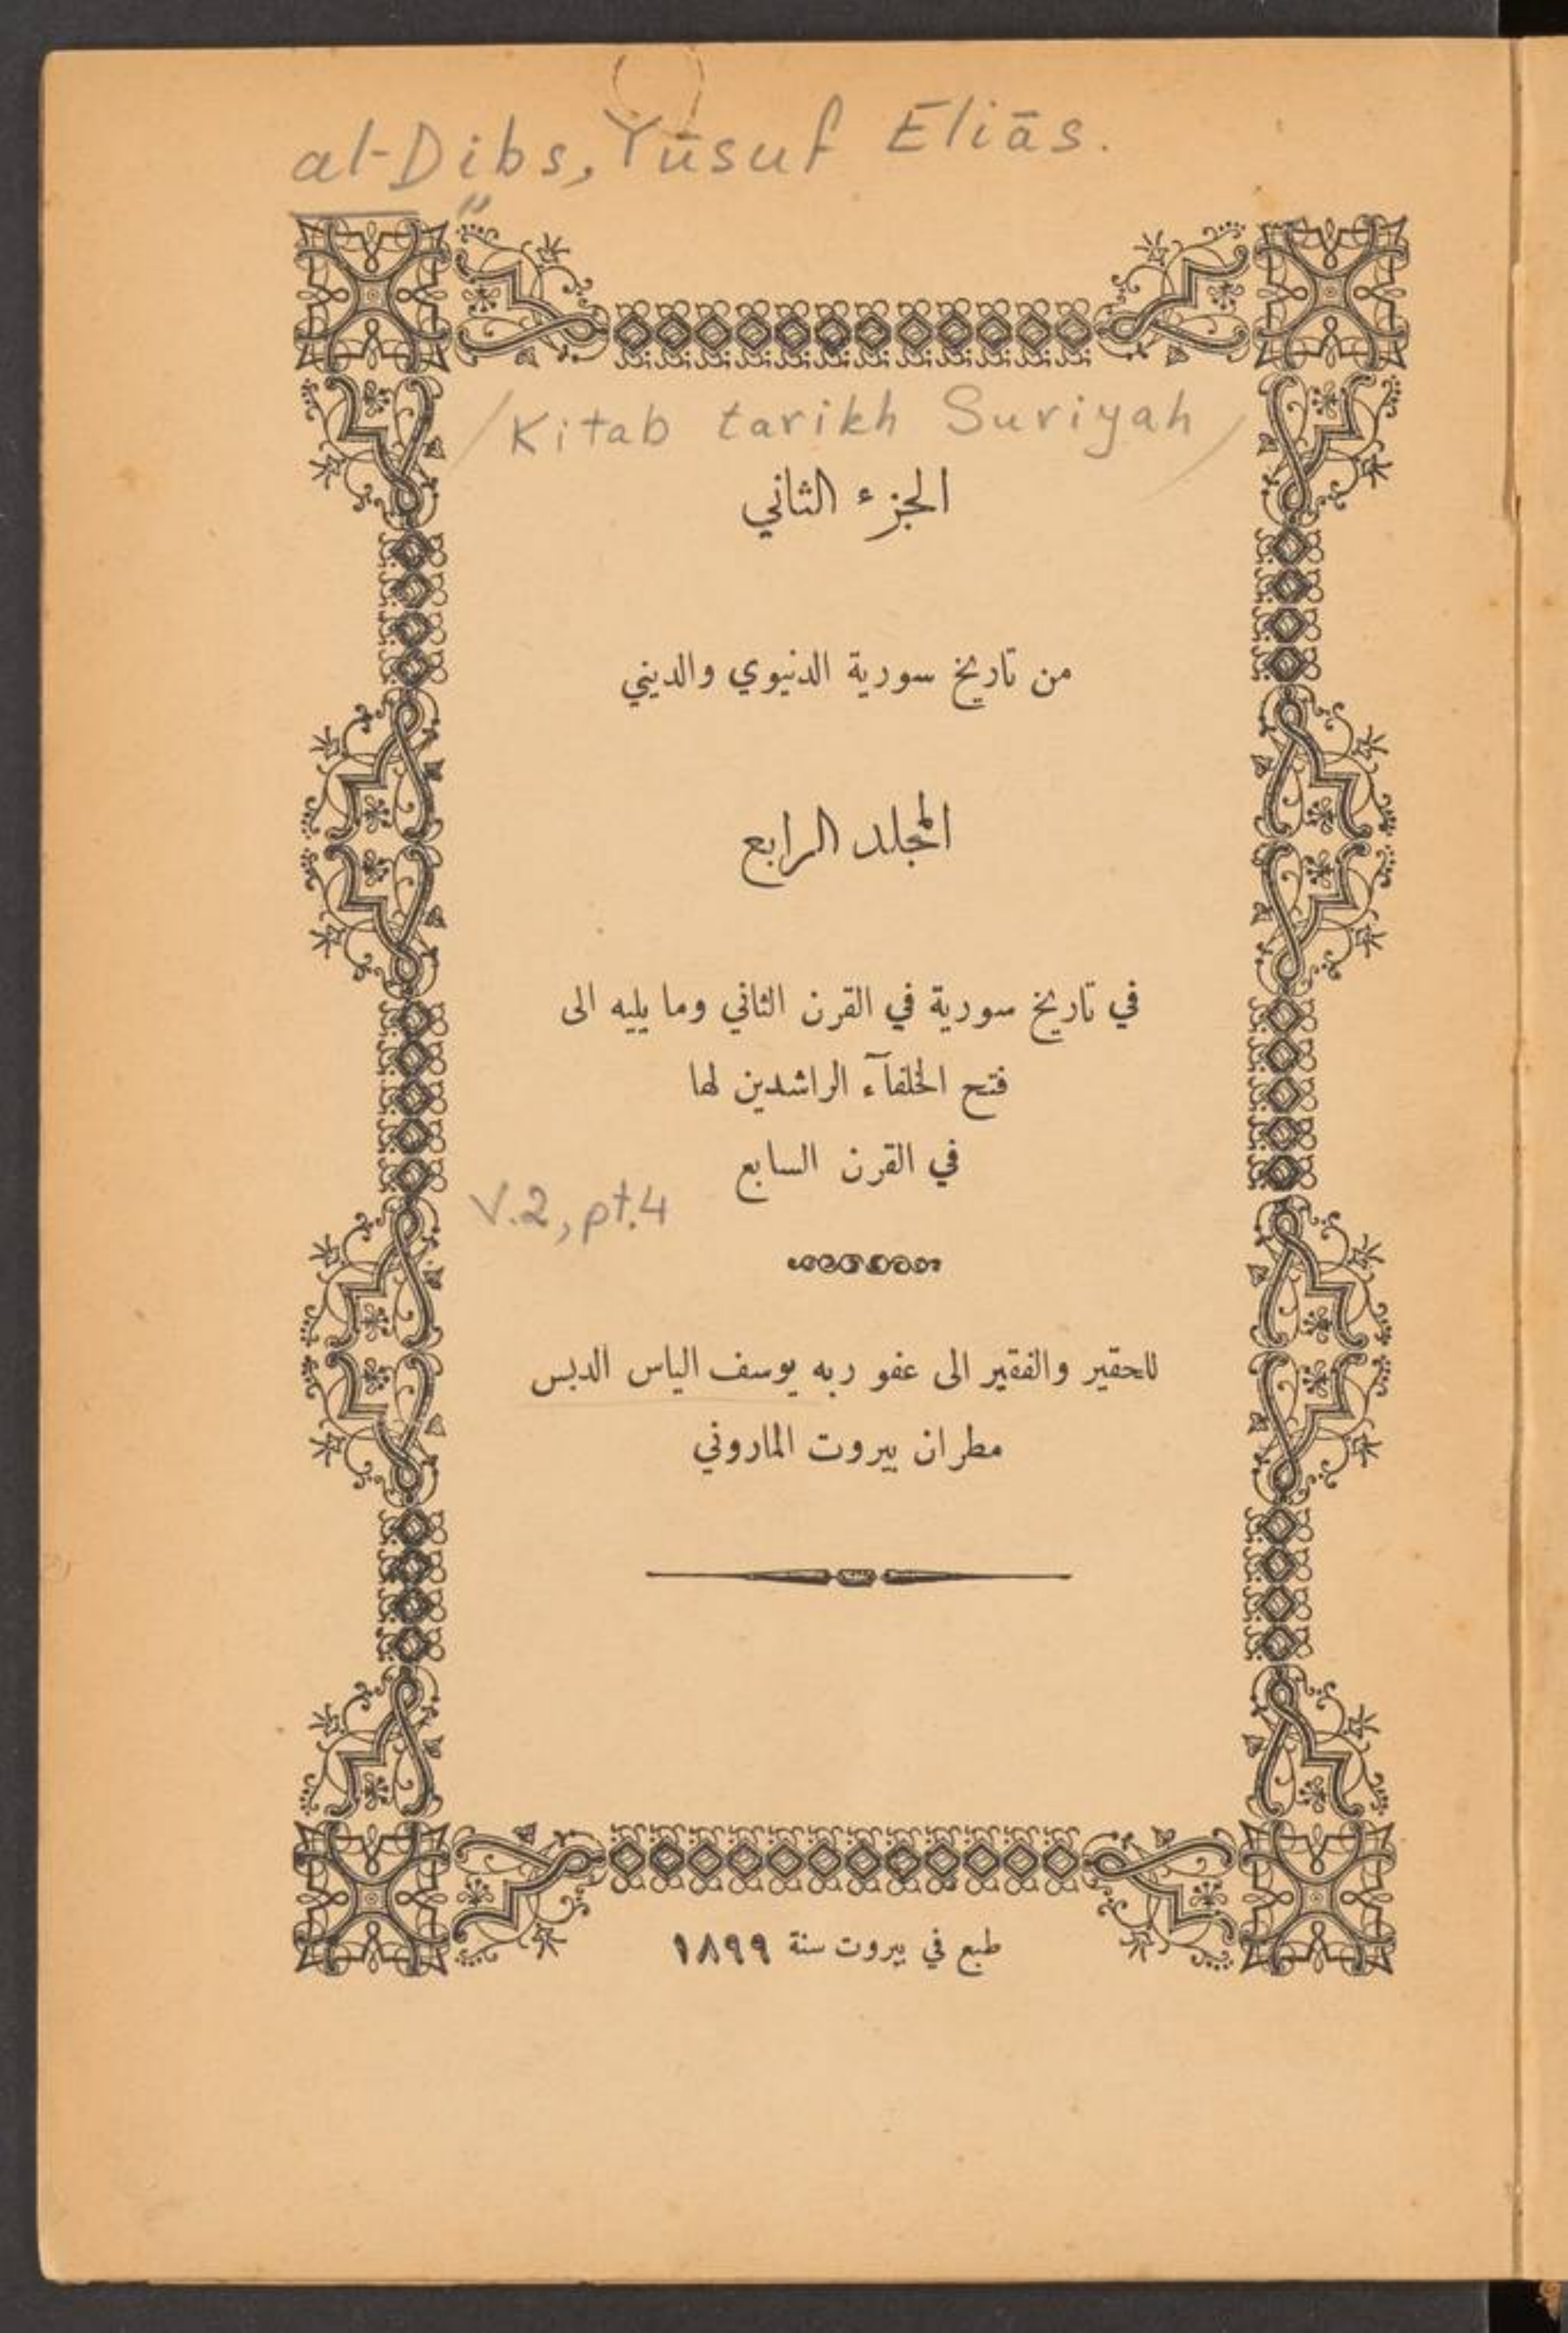 al-Dibs, Yūsuf Eliās.
/Kitab tarikh Suriyah/
الجزء الثاني
من تاريخ سورية الدنيوي والديني
المجلد الرابع
في تاريخ سورية في القرن الثاني وما يليه الى
فتح الخلفآء الراشدين لها
في القرن السابع
V.2, pt.4
للحقير والفقير الى عفو ربه يوسف الياس الدبس
مطران بيروت الماروني
طبع في بيروت سنة ١٨٩٩